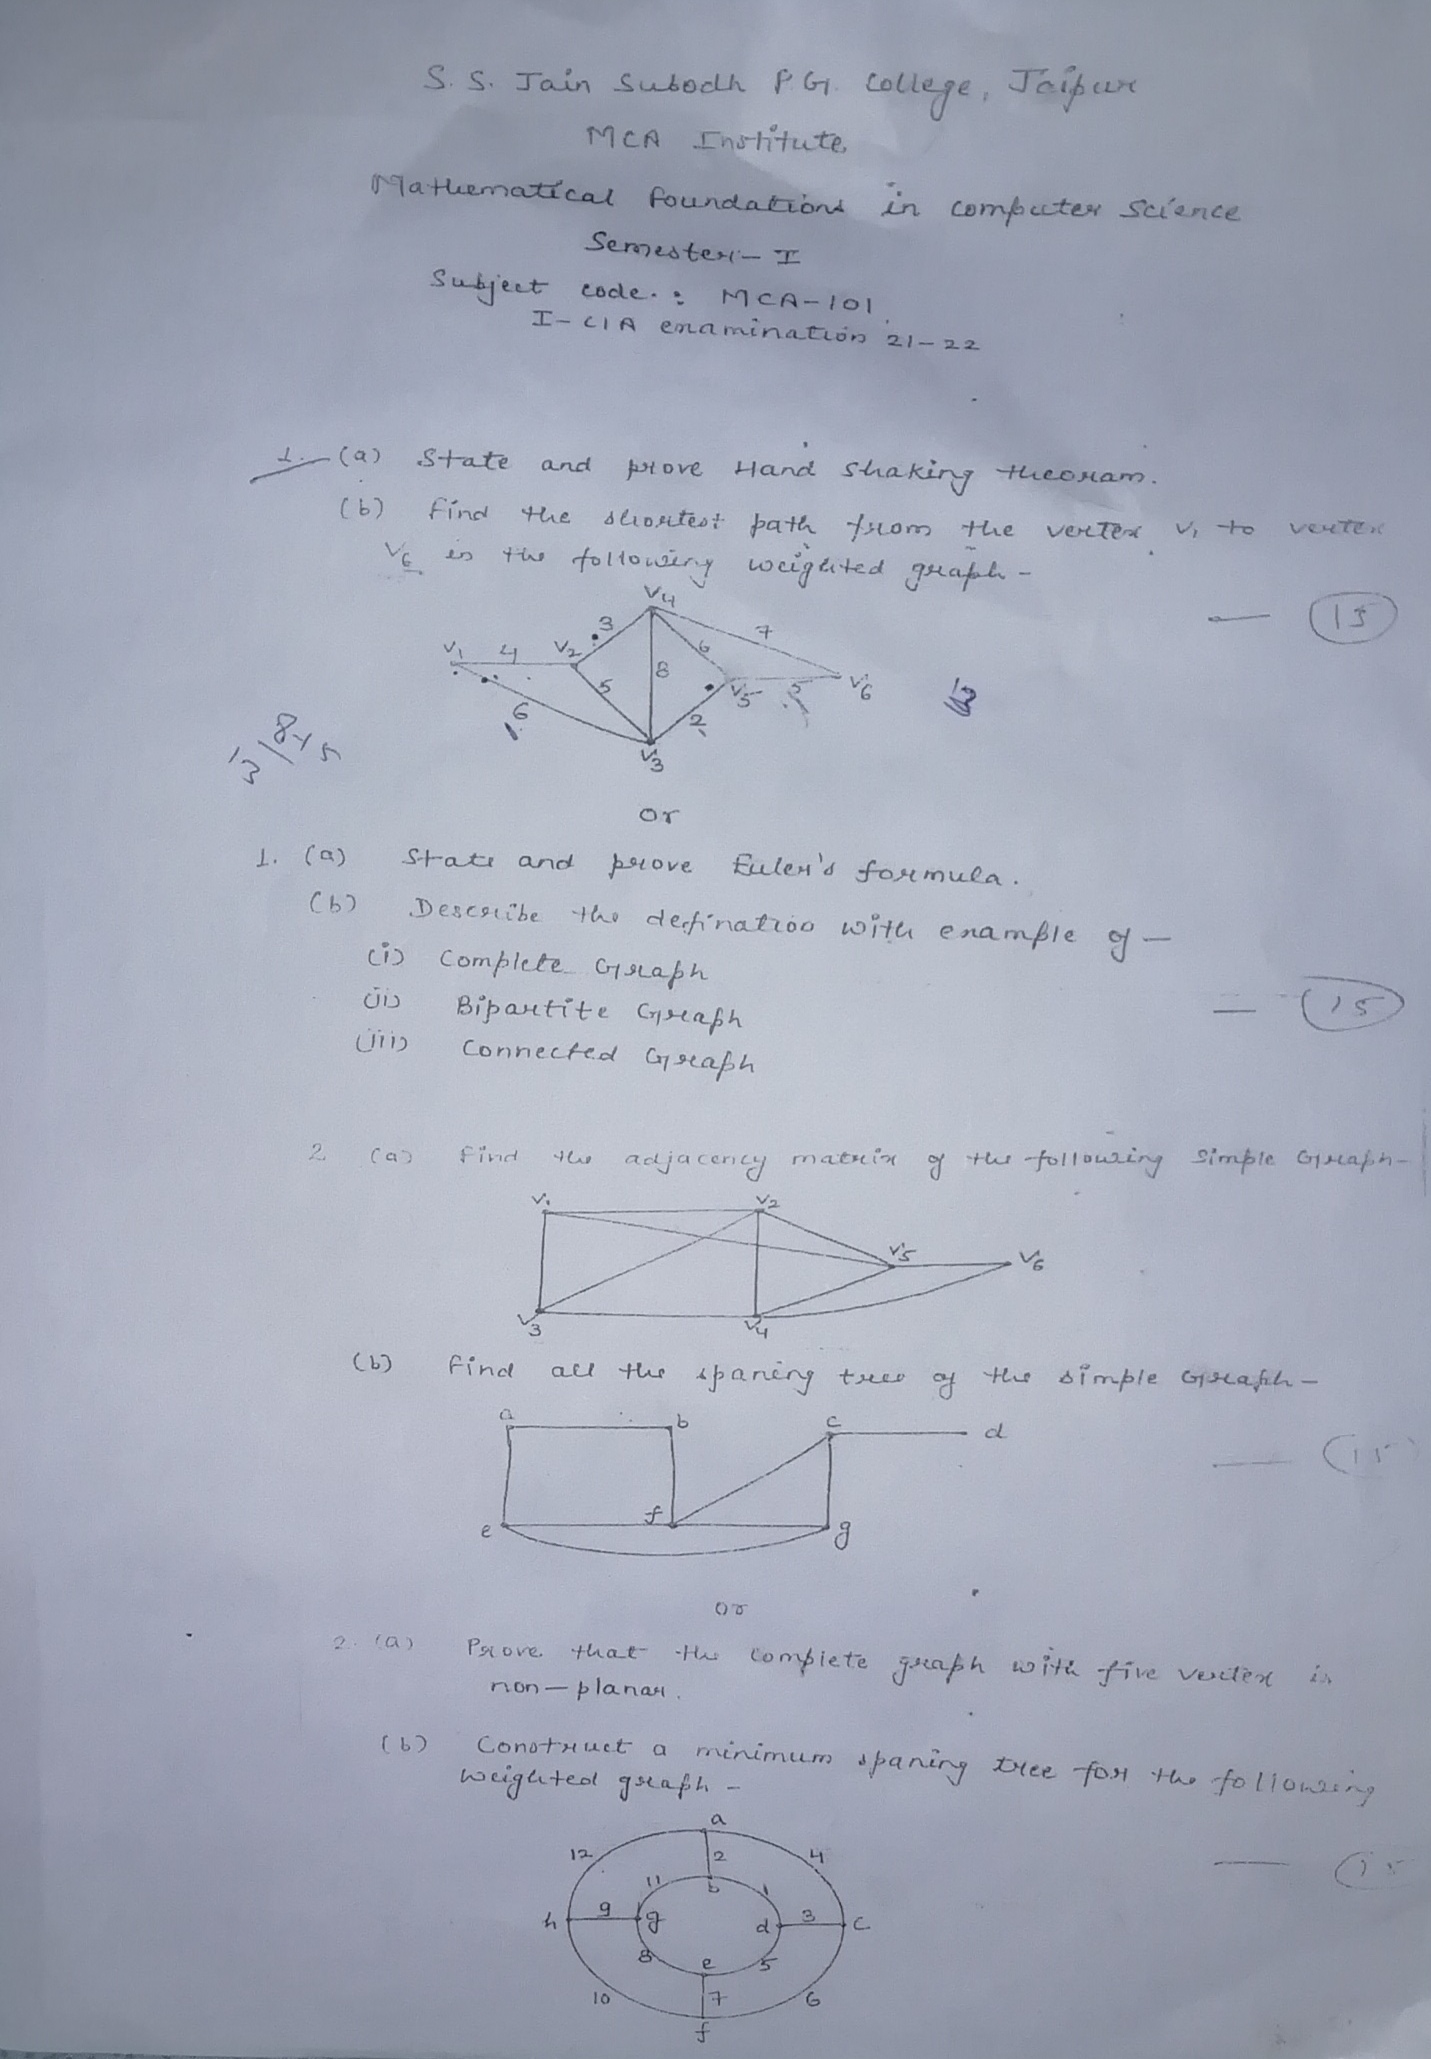 S. S. Jain Subodh P.G. College, Jaipur
MCA Institute
Mathematical foundations in computer Science
Semester - I
Subject code. : MCA-101
I- CIA examination 21-22
1. (a) State and prove Hand Shaking theoram.
(b) Find the shortest path from the vertex V1 to vertex
V6 in the following weighted graph -
15
V4
3
7
V1 4 V2
6
8
5
V5 5 V6
13
6
2
V3
or
1. (a) State and prove Euler's formula.
(b) Describe the defination with example of -
(i) Complete Graph
(ii) Bipartite Graph
15
(iii) Connected Graph
2 (a) Find the adjacency matrix of the following Simple Graph-
V1 V2
V5 V6
V3 V4
(b) Find all the spaning tree of the simple Graph -
a b c d
15
e f g
or
2. (a) Prove that the complete graph with five vertex is
non-planar.
(b) Construct a minimum spaning tree for the following
weighted graph -
a
12 2 4
15
11 b 1
h 9 g d 3 c
8 e 5
10 7 6
f